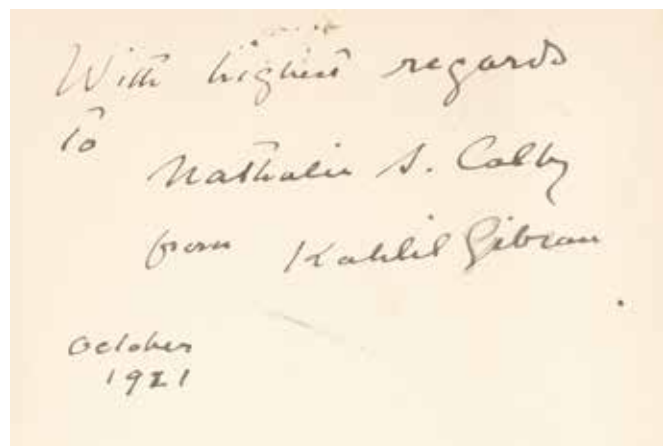 With highest regards
to
Nathalie S. Colby
from Kahlil Gibran
October
1921